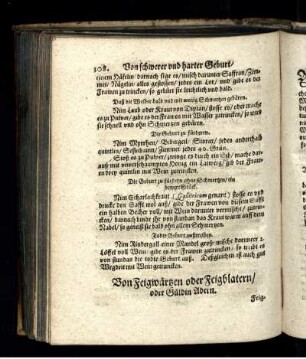 108. Von schwerer vnd harter Geburt/
einem Häfelin/ darnach sige es/ misch darunter Saffran/ Zim-
met/ Nägelin/ alles gestossen/ jedes ein Lot/ vnd gibs der
Frawen zutrincken/ so gebiert sie leichtlich vnd bald.
Daß die Weiber bald vnd mit wenig Schmertzen gebären.
Nim Laub oder Kraut von Diptan/ stosse es/ oder mache
es zu Pulver/ gibs der Frawen mit Wasser zutrincken/ so wird
sie schnell vnd ohn Schmertzen gebären.
Die Geburt zu fürdern.
Nim Myrrhen/ Bibergeil/ jedes anderthalb
quintlin/ Zimmet jedes 40. Gran.
Stoß es zu Pulver/ zwings es durch ein Sib/ mache dar-
auß mit Honig ein Latwerg/ gib der Fraw-
en drey quintlin mit Wein zutrincken.
Die Geburt zu fürdern ohne Schmertzen/ ein
Nim Scharlachkraut genant/ stosse es vnd
drucke den Safft wol auß/ gibs der Frawen von diesem Safft
ein halben Becher voll/ mit Wein darunter vermischt/ zutrin-
cken/ darnach binde jhr von solchem das Kraut warm auff den
Nabel/ so genist sie bald ohn allen Schmertzen.
Todte Geburt außtreiben.
Nim Rindergall einer Mandel groß/ mische darunter 2.
Löffel voll Wein/ gibs der Frawen zutrincken/ so treibt es
von stundan die todte Geburt auß. Deßgleichen ist auch gut
Wegdritt mit Wein getruncken.
Von Feigwartzen oder Feigblatern/
oder Güldin Adern.
Feig-